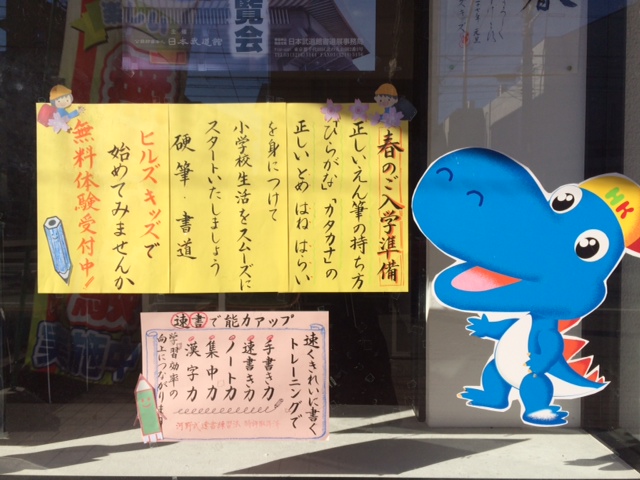 覧会
日本武道館
春のご入学準備
正しいえん筆の持ち方
「ひらがな」「カタカナ」の
正しいとめ はね はらい
を身につけて
小学校生活をスムーズに
スタートいたしましょう
硬筆・書道
ヒルズキッズで
始めてみませんか
無料体験受付中！
HK
速書で能力アップ
速くきれいに書く
トレーニングで
手書き力
速書き力
ノート力
集中力
漢字力
学習効率の
向上につながります
実施中